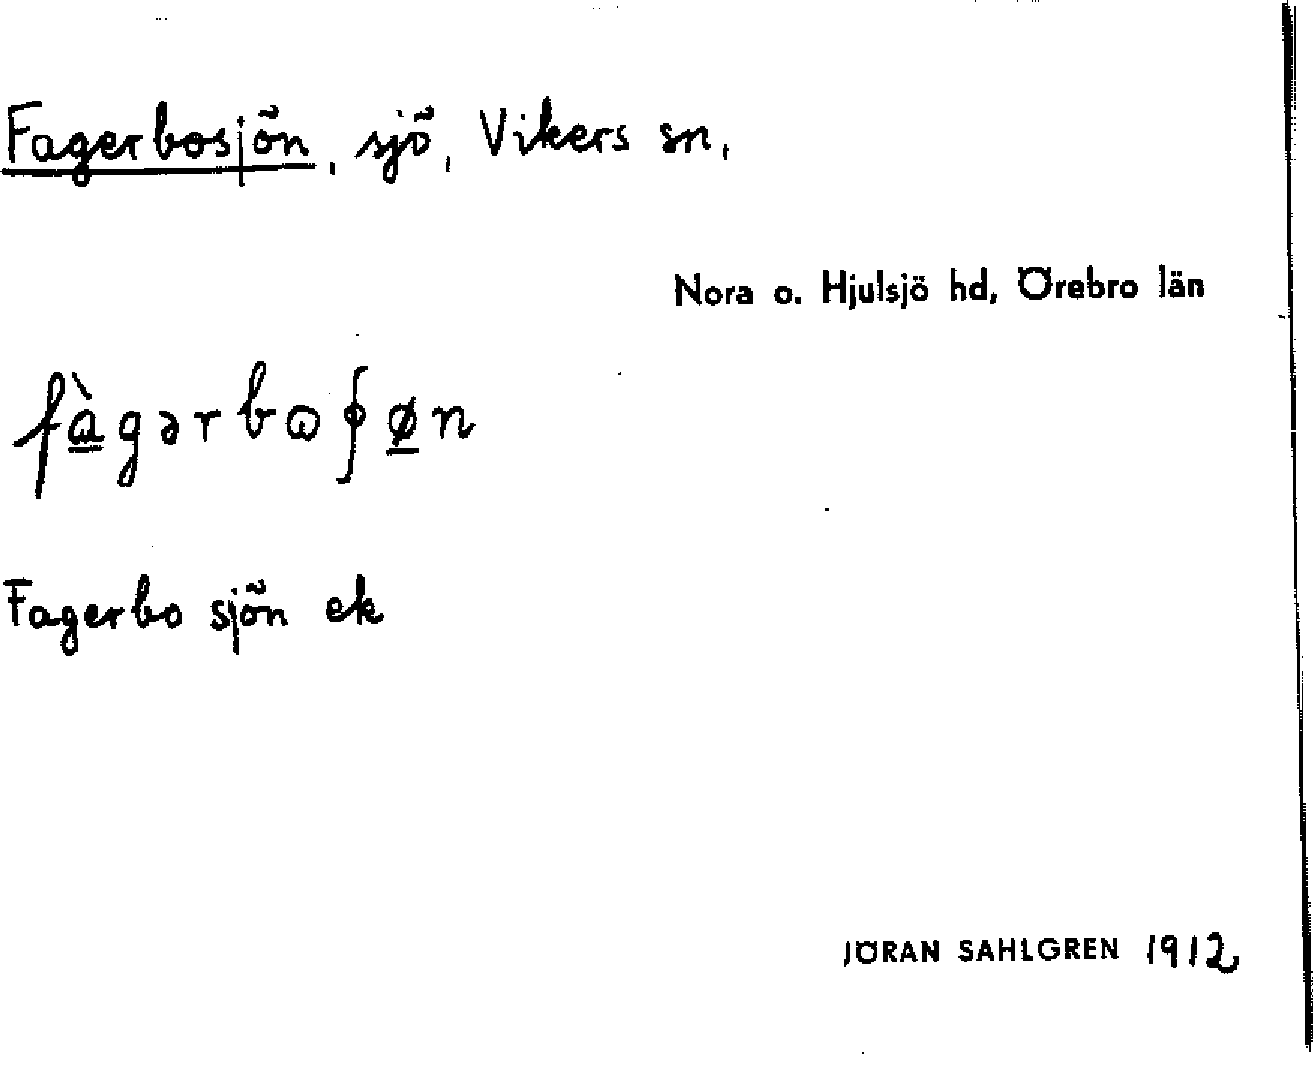 Fagerbosjön, sjö, Vikers sn,
Nora o. Hjulsjö hd, Örebro län
fàgərbωʃøn
Fagerbo sjön ek
JÖRAN SAHLGREN 1912